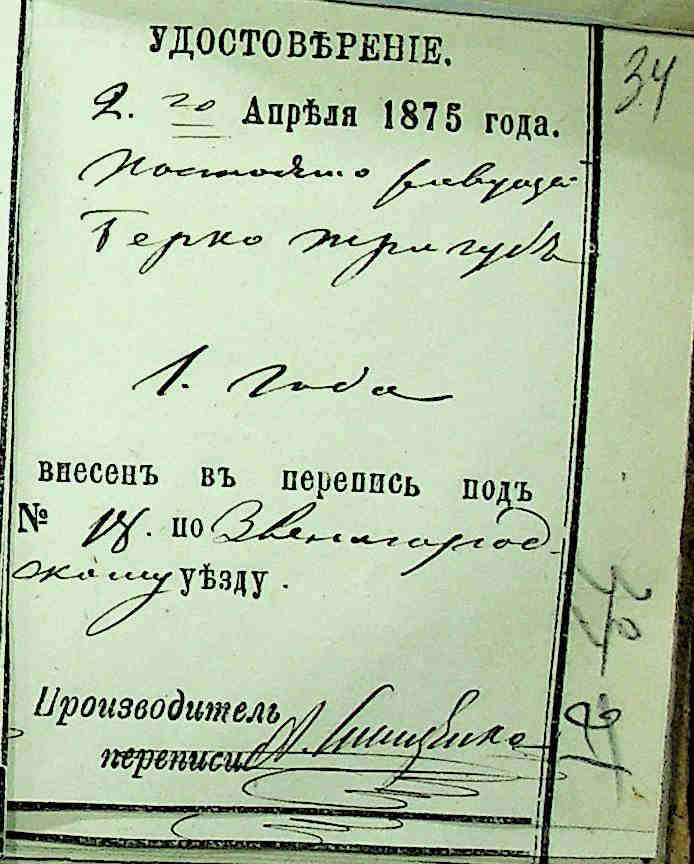 УДОСТОВѢРЕНІЕ.
34
2. го Апрѣля 1875 года.
Постоянно
Берко Тригубъ
1. года
внесенъ въ перепись подъ
№ 18. по Звенигород-
скому уѣзду.
Производитель
переписи